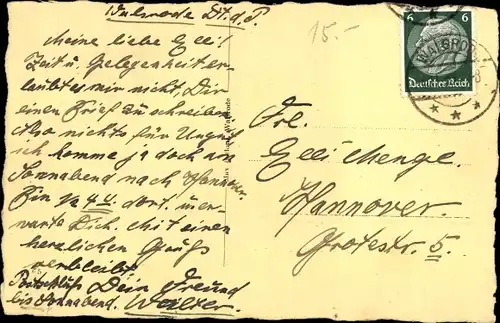 Walsrode Dt. d. P.
15.-
Meine liebe Elli!
Zeit u. Gelegenheit er-
laubt es mir nicht, Dir
einen Brief zu schreiben
Also nichts für Ungut
ich komme ja doch am
Sonnabend nach Hannover.
Bin 4 U. dort. u. er-
warte Dich. Mit einen
herzlichen Gruß
verbleibt
Dein Freund
Postschluß
bis Sonnabend. Walter.
6 6
Deutsches Reich
WALSRODE
Frl.
Elli Mengel.
Hannover.
Grotestr. 5.